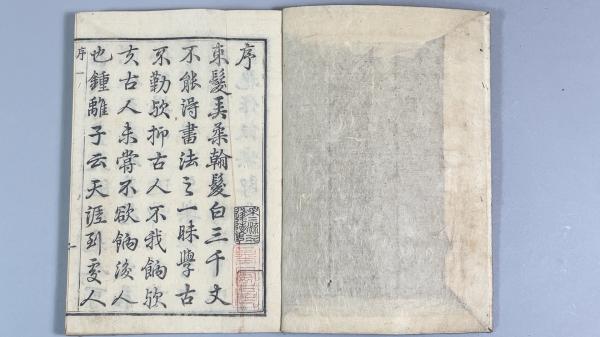 序
束髮弄柔翰髮白三千丈
不能得書法之一昧學古
不勤欤抑古人不我餉欤
古人未嘗不欲餉後人
也鍾離子云天涯到處人
序 一